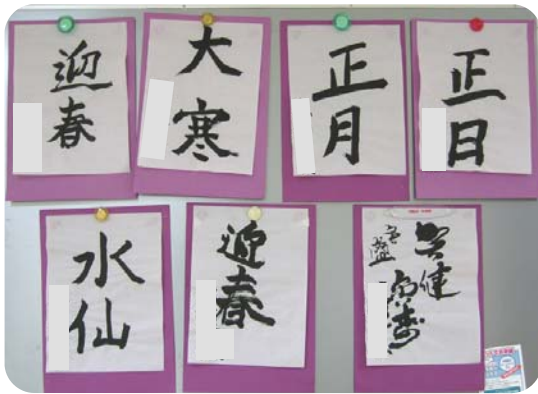 迎春
大寒
正月
正日
水仙
迎春